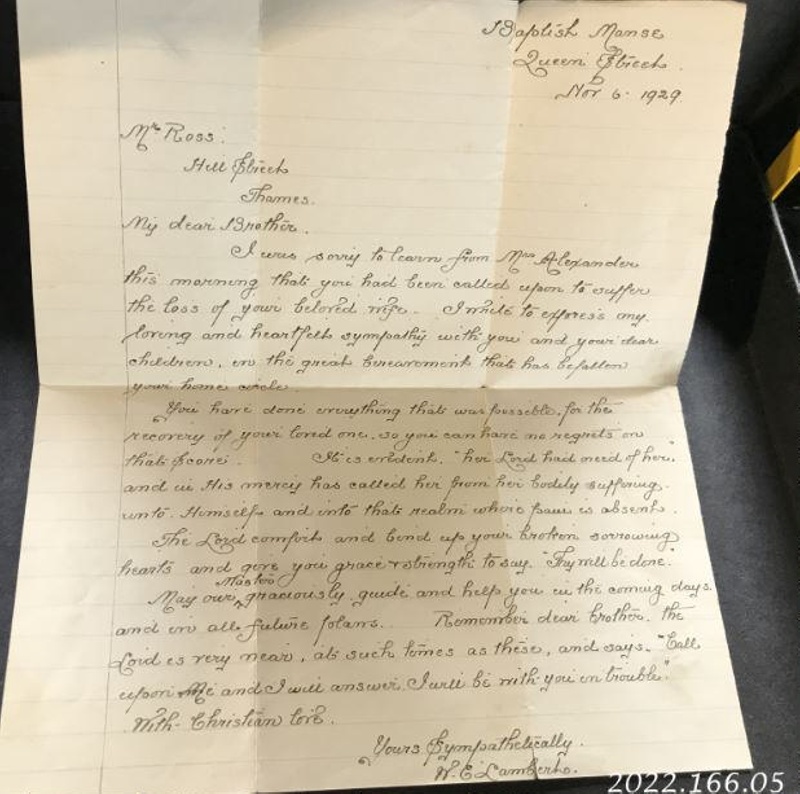 Baptist Manse
Queen Street.
Nov 6. 1929.
Mr Ross.
Hill Street
Thames.
My dear Brother.
I was sorry to learn from Mrs Alexander
this morning that you had been called upon to suffer
the loss of your beloved wife. I write to express my
loving and heartfelt sympathy with you and your dear
children, in the great bereavement that has befallen
your home circle
You have done everything that was possible, for the
recovery of your loved one, so you can have no regrets on
that score. It is evident, "her Lord had need of her,"
and in His mercy has called her from her bodily suffering.
unto Himself and into that realm where pain is absent.
The Lord comfort and bind up your broken sorrowing
hearts and give you grace & strength to say. "Thy will be done."
May our Master graciously guide and help you in the coming days.
and in all future plans. Remember dear brother, the
Lord is very near, at such times as these, and says. "Call
upon Me and I will answer. I will be with you in trouble."
With Christian love.
Yours Sympathetically.
W. E. Lambert.
2022.166.05